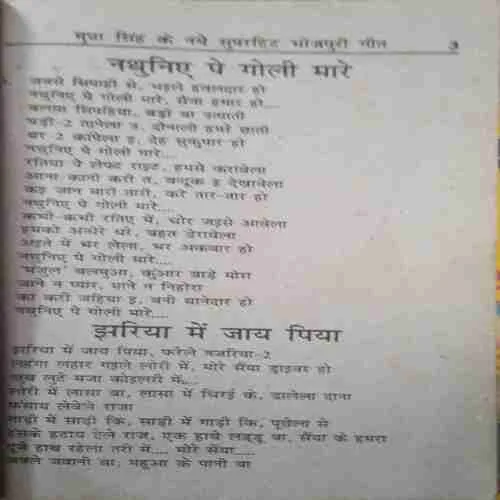 मुन्ना सिंह के नये सुपरहिट भोजपुरी गीत 3
नथुनिए पे गोली मारे
जबसे सिपाही से, भइले हवलदार हो
नथुनिए पे गोली मारे, सैंया हमार हो...
बलमा सिपहिया, बड़ी बा उत्पाती
घड़ी-2 तानेला उ, दोनाली हमरे छाती
थर-2 कांपेला इ, देह सुकुमार हो
नथुनिए पे गोली मारे....
रतिया में लेफ्ट राइट, हमसे करावेला
आना कानी करी त, बन्दूक इ देखावेला
कइ जान मारी तारी, करे तार-तार हो
नथुनिए पे गोली मारे....
कभी-कभी रतिए में, चोर जइसे आवेला
हमको अन्हारे धरे, बहुत डेरावेला
अइते में भर लेला, भर अकवार हो
नथुनिए पे गोली मारे....
'मंजुल' बलमुआ, कुंआर बाड़े मोरा
जाने न प्यार, माने न निहोरा
का करी जहिया इ, बनी थानेदार हो
नथुनिए पे गोली मारे....
झरिया में जाय पिया
झरिया में जाय पिया, फरेले नजरिया-2
लहंगा लहार गइले लोरी में, मोरे सैंया ड्राइवर हो
लुटे मजा कोइलरी में....
लोरी में लासा बा, लासा में चिरई के, डालेला दाना
फंसाय लेवेले राजा
गाड़ी में साड़ी कि, साड़ी में गाड़ी कि, पूछेला से
हसके हटाय देले राज, एक हाथे लड्डू बा, सैंया के हमरा
दूजे हाथ रहेला तरी में.... मोरे सैंया.....
जवानी बा, महुआ के पानी बा